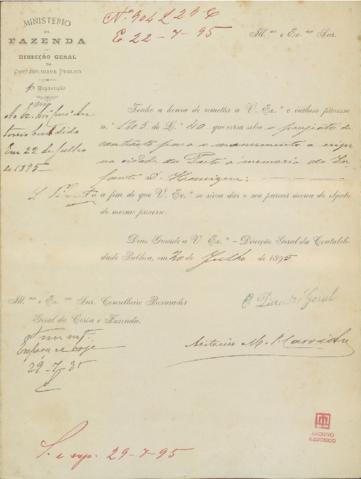 MINISTERIO
DA
FAZENDA
DIRECÇÃO GERAL
DA
CONTABILIDADE PUBLICA
Repartição
E 22-7-95
Ill.mo e Ex.mo Snr.
Em 22 de Julho
de 1895
Tenho a honra de remetter a V. Ex.ª o incluso processo
n.º 1605 do L.º 40 que versa sobre o projecto de
contracto para o monumento a erigir
na cidade do Porto á memoria do In-
fante D. Henrique
a fim de que V. Ex.ª se sirva dar o seu parecer ácerca do objecto
do mesmo processo.
Deus Guarde a V. Ex.ª — Direcção Geral da Contabili-
dade Publica, em 20 de Julho de 1895
Ill.mo e Ex.mo Snr. Conselheiro Procurador
Geral da Corôa e Fazenda.
O Director Geral
29-7-95
29-7-95
ARQUIVO
HISTÓRICO